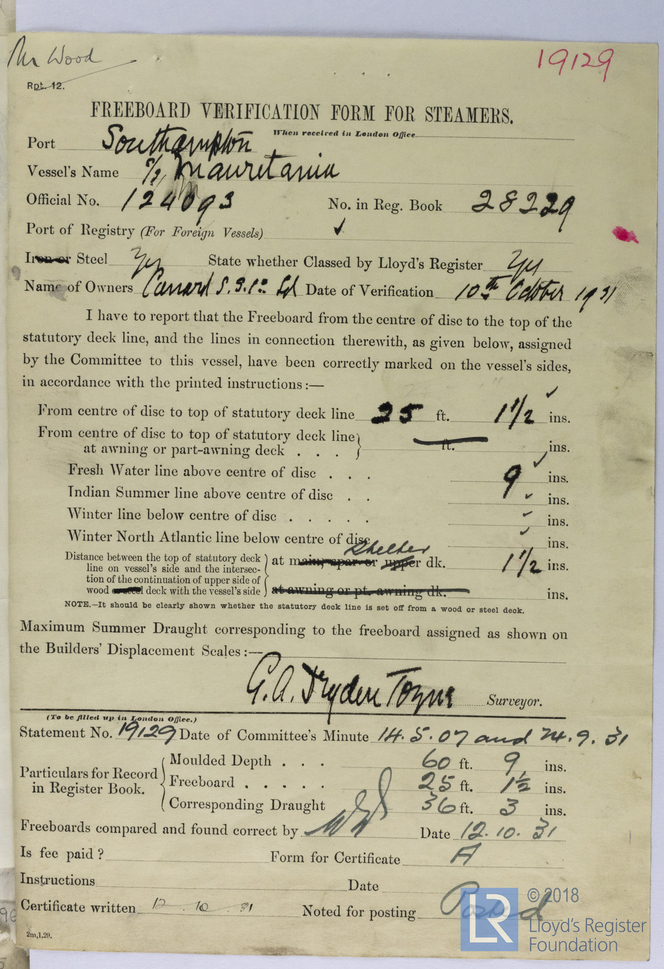 Mr Wood
19129
Rpt. 12.
FREEBOARD VERIFICATION FORM FOR STEAMERS.
When received in London Office
Port Southampton
Vessel's Name S/S Mauretania
Official No. 124093 No. in Reg. Book 28229
Port of Registry (For Foreign Vessels) ✓
Iron or Steel State whether Classed by Lloyd's Register
Name of Owners Cunard S.S. Co Ld Date of Verification 10th October 1931
I have to report that the Freeboard from the centre of disc to the top of the
statutory deck line, and the lines in connection therewith, as given below, assigned
by the Committee to this vessel, have been correctly marked on the vessel's sides,
in accordance with the printed instructions:—
From centre of disc to top of statutory deck line 25 ft. 1 1/2 ins.
From centre of disc to top of statutory deck line
at awning or part-awning deck . . . ft. ins.
Fresh Water line above centre of disc . . . 9 ins.
Indian Summer line above centre of disc . . ins.
Winter line below centre of disc . . . . . ins.
Winter North Atlantic line below centre of disc ins.
Shelter
Distance between the top of statutory deck
line on vessel's side and the intersec-
tion of the continuation of upper side of
wood steel deck with the vessel's side
at main, spar or upper dk. 1 1/2 ins.
at awning or pt. awning dk. ins.
NOTE.—It should be clearly shown whether the statutory deck line is set off from a wood or steel deck.
Maximum Summer Draught corresponding to the freeboard assigned as shown on
the Builders' Displacement Scales:—
G. A. Dryden Toyne Surveyor.
(To be filled up in London Office.)
Statement No. 19129 Date of Committee's Minute 14.5.07 and 24.9.31
Particulars for Record
in Register Book.
Moulded Depth . . . 60 ft. 9 ins.
Freeboard . . . . . 25 ft. 1 1/2 ins.
Corresponding Draught 36 ft. 3 ins.
Freeboards compared and found correct by Date 12.10.31
Is fee paid? Form for Certificate A
Instructions Date
Certificate written 12 10 31 Noted for posting Posted
2m,1,29.
LR
© 2018
Lloyd's Register
Foundation